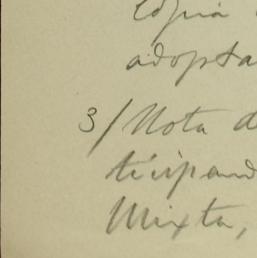 Copia
adopta
3/ Nota d
ticipand
Mixta,